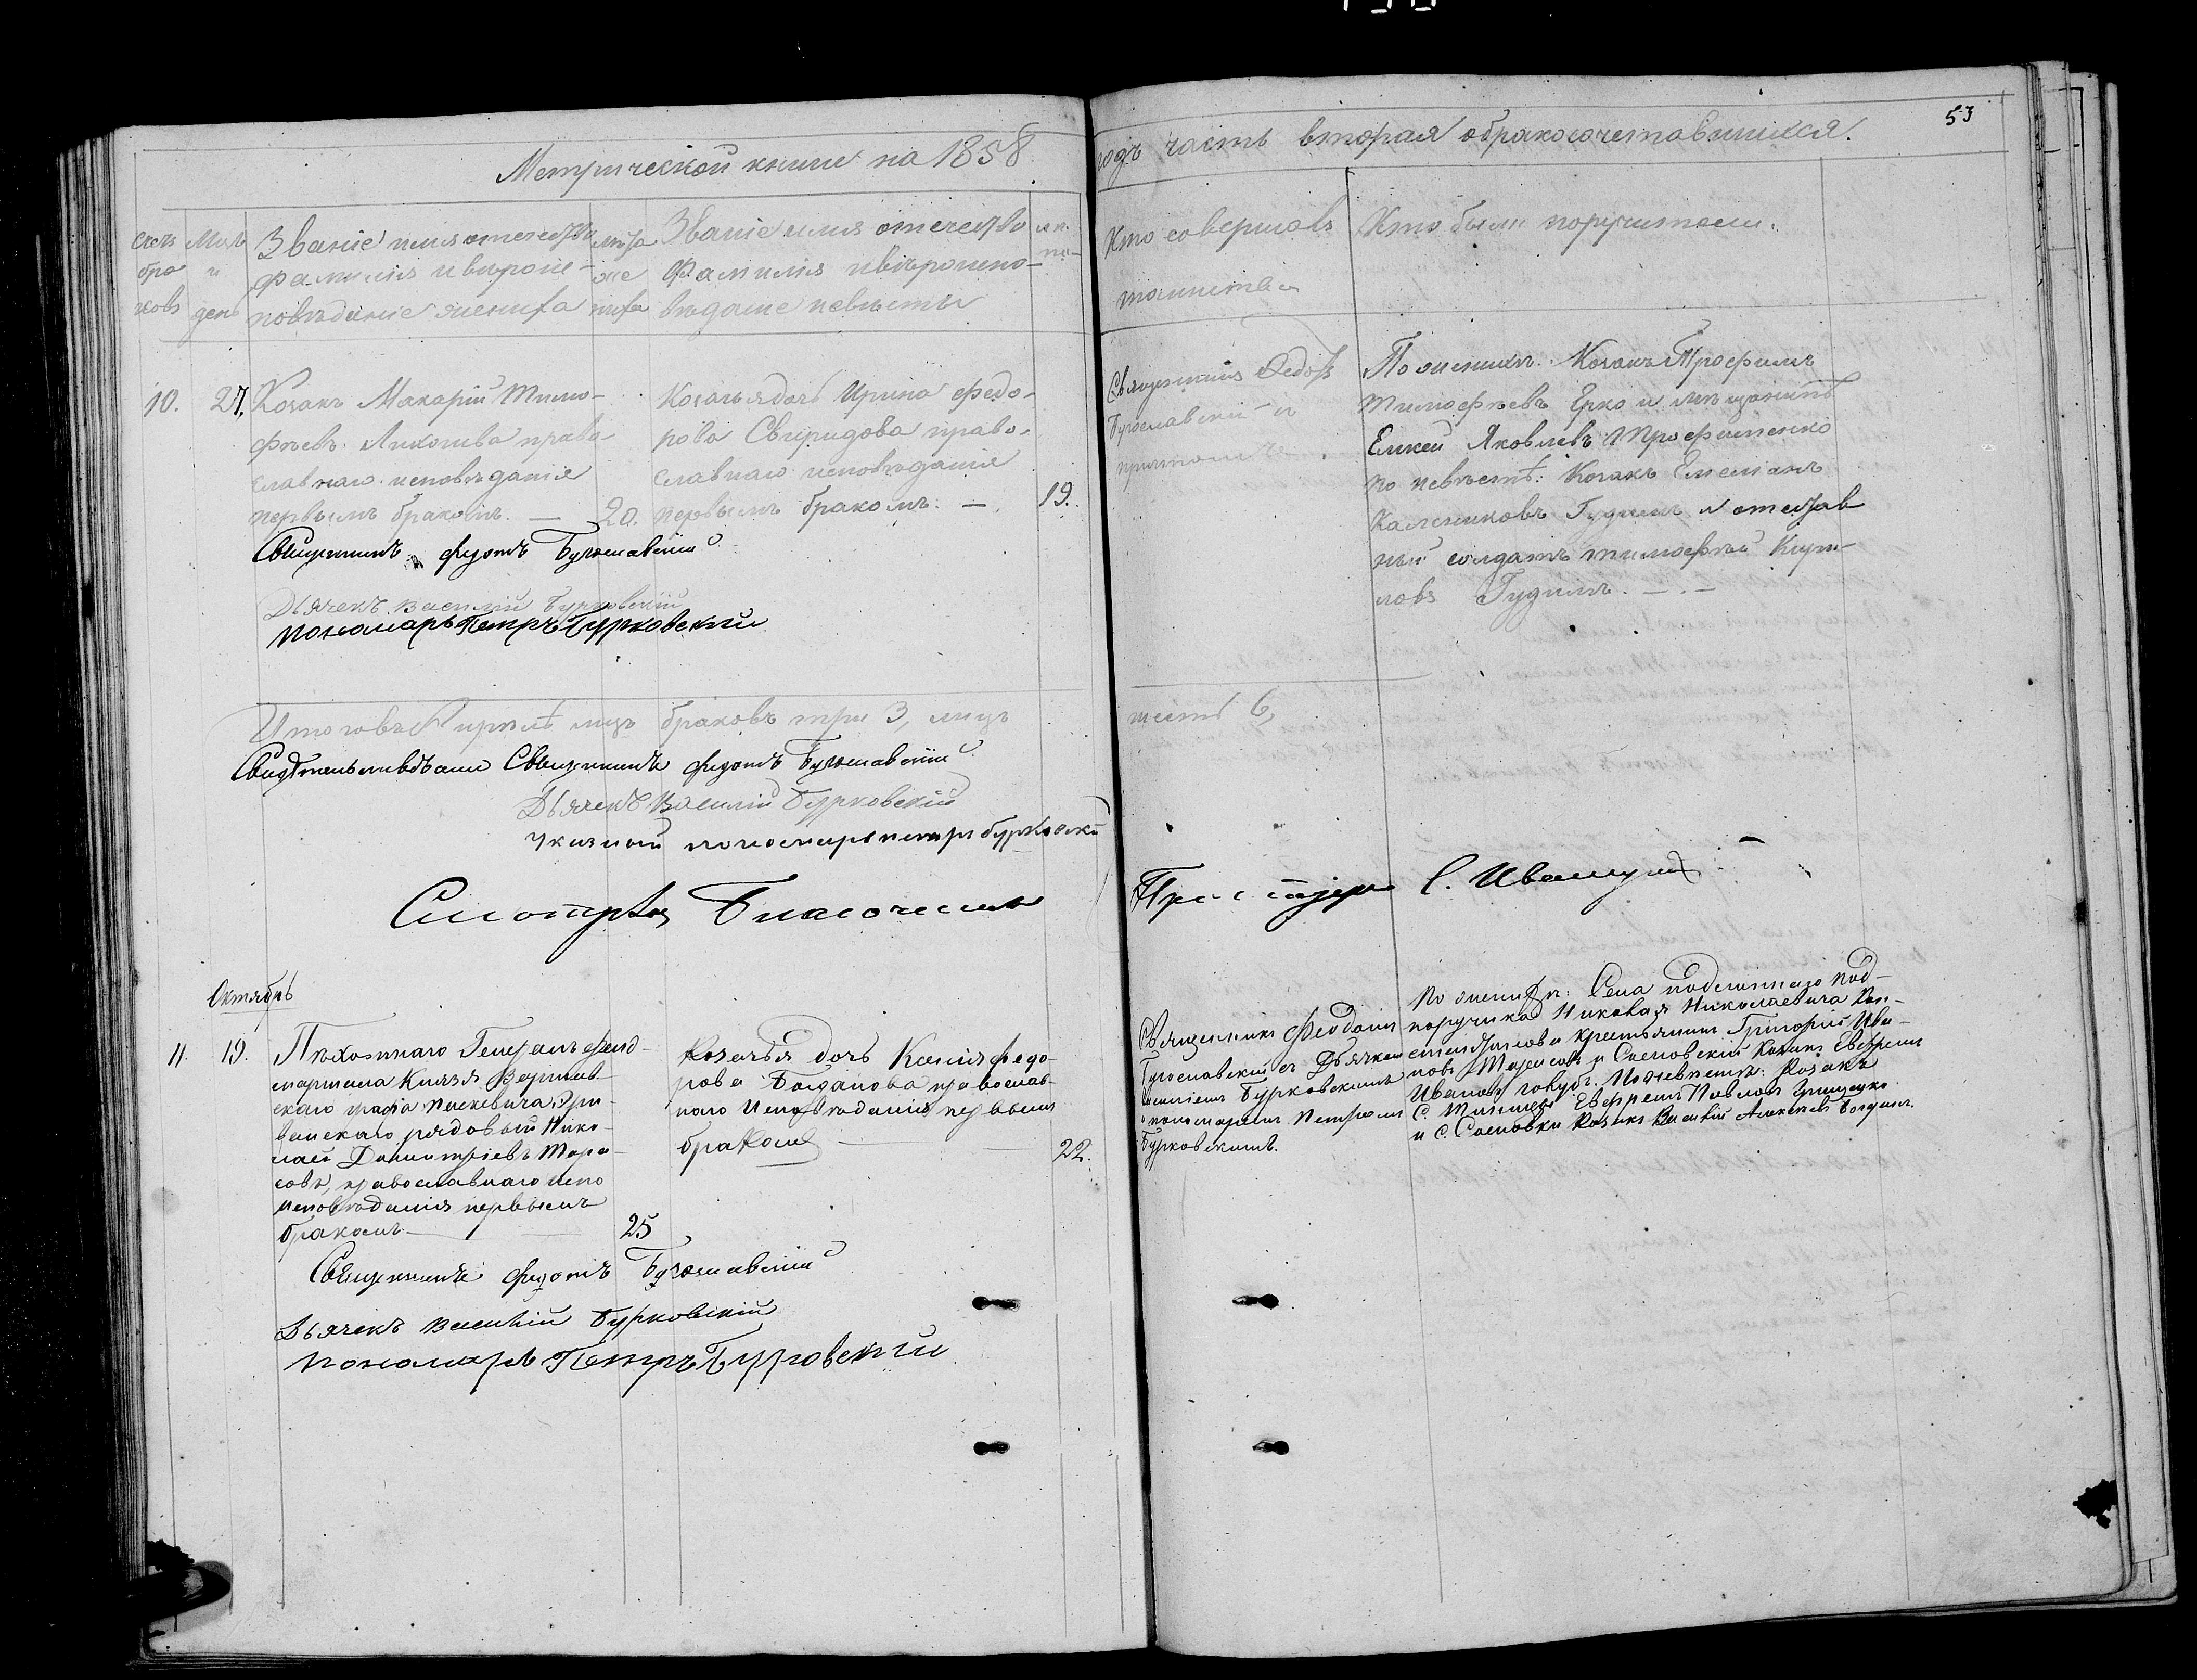 53
Метрической книги на 1858
годъ часть вторая обракосочетавшихся.
Счетъ браковъ
Мѣсяцъ и день
Званіе имя отечество
фамилія и вѣроис-
повѣданіе жениха
лѣта же
ниха
Званіе имя отечество
фамилія и вѣроиспо-
вѣданіе невѣсты
Кто совершалъ
таинство
Кто были поручители.
10.
27.
Козакъ Макарій Тимо-
фѣевъ право-
славнаго исповѣданія
первымъ бракомъ. —
20.
Козачья дочь Ирина Федо-
рова Свиридова право-
славнаго исповѣданія
первымъ бракомъ. —
19.
Священникъ Федотъ
Богославскій
По женихѣ: Козакъ Трофимъ
Тимофѣевъ Ерко и мѣщанинъ
Яковлевъ Трофименко
по невѣстѣ: Козакъ Емеліанъ
Калениковъ Гудимъ и отстав
ный солдатъ Тимофѣй Кири-
ловъ Гудимъ. —
Священникъ Федотъ Богославскій
Дьячекъ Василій Бурковскій
Пономарь Петръ Бурковскій
Итого въ Апрѣлѣ мцѣ браковъ три 3, лицъ
шесть 6,
Свидѣтельствовали Священникъ Федотъ Богославскій
Дьячекъ Василій Бурковскій
Указный пономарь Петръ Бурковскій
Смотрѣлъ Благочинный
С.
Октябрь
11.
19.
Пѣхотнаго Генералъ Фельд-
маршала Князя Варшав-
скаго графа Паскевича Эри-
ванскаго рядовый Нико-
лай Димитріевъ Тара-
совъ, православнаго испо
исповѣданія первымъ
бракомъ —
25
Козачья дочь Федо-
рова Богданова православ-
наго исповѣданія первымъ
бракомъ —
22.
Священникъ Феодотъ
Богославскій съ Дьячкомъ
Василіемъ Бурковскимъ
и пономаремъ Петромъ
Бурковскимъ.
По женихѣ: Села Подлипнаго под-
поручика Николая Николаевича Кон-
стантинова крестьянинъ Григорій Ива-
новъ Тарасовъ и Сосновскій Козакъ Евфремъ
Ивановъ Голубъ. По невѣстѣ: Козакъ
С. Евфремъ Павловъ
и С. Сосновки Козакъ Василій Алексѣевъ Богданъ.
Священникъ Федотъ Богославскій
Дьячекъ Василій Бурковскій
Пономарь Петръ Бурковскій